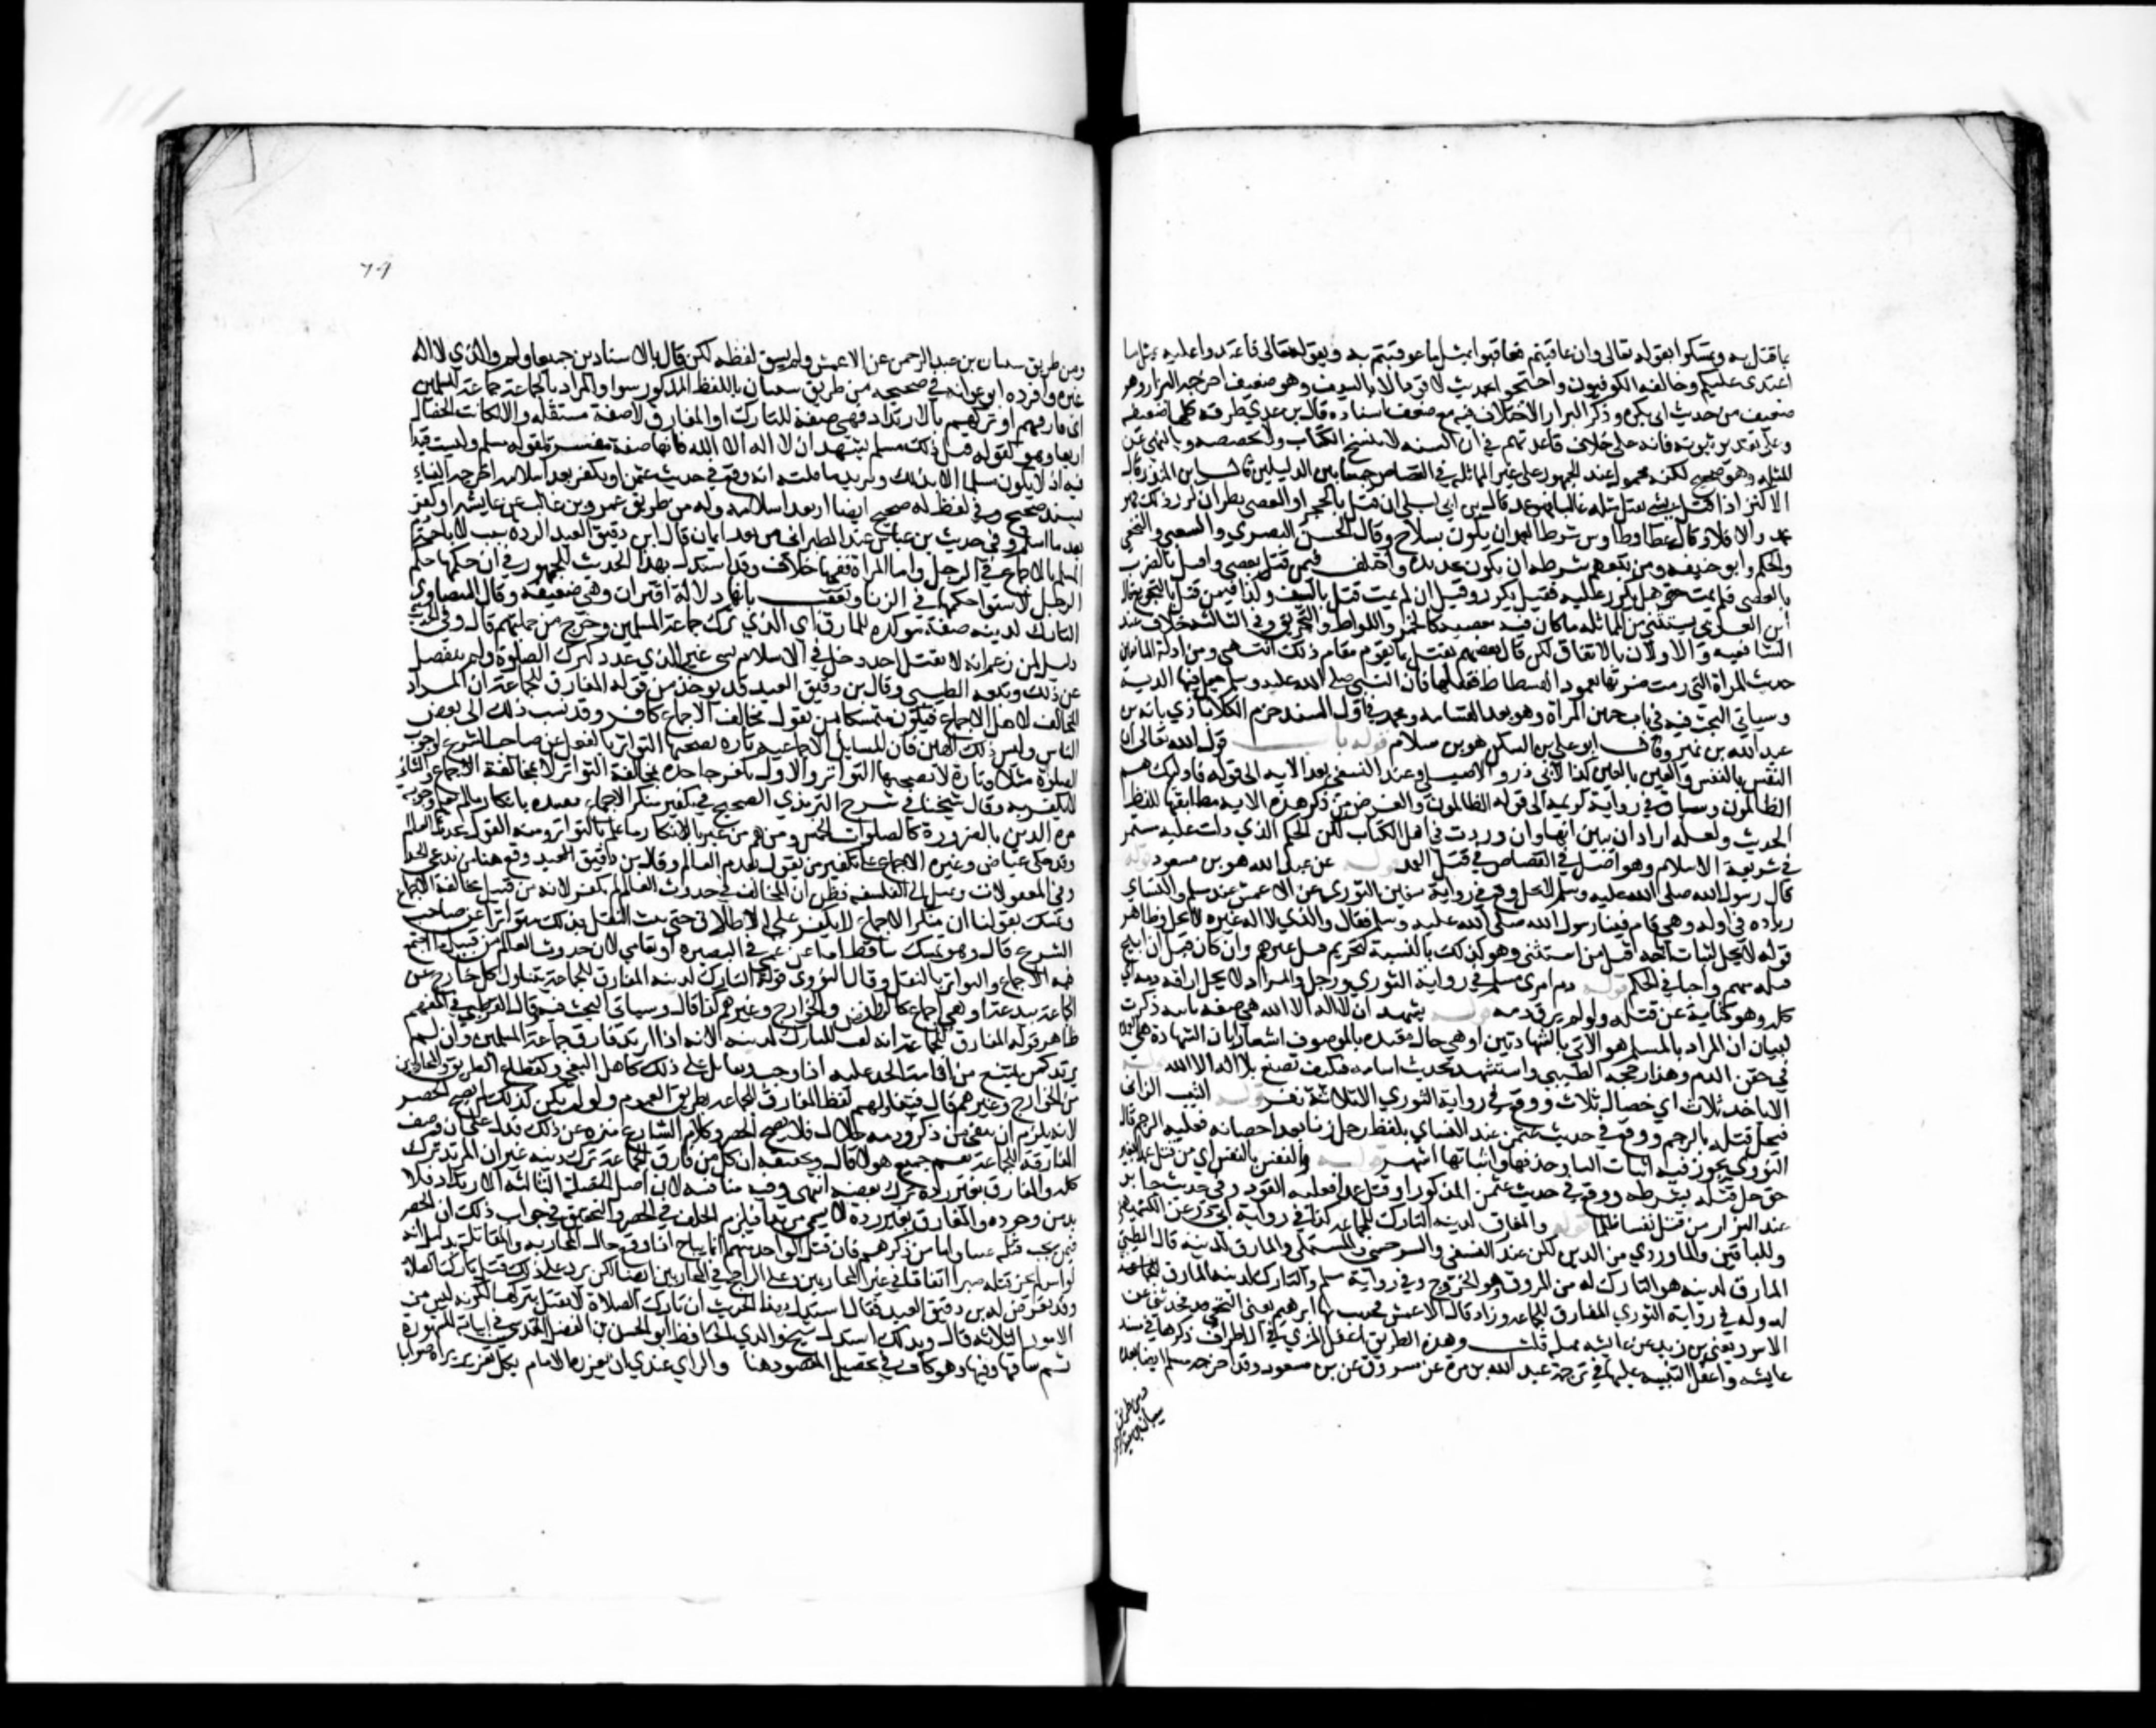 بما قتل به وتمسكوا بقوله تعالى وان عاقبتم فعاقبوا بمثل ما عوقبتم به وبقوله تعالى فاعتدوا عليه بمثل ما
اعتدى عليكم وخالف الكوفيون واحتجوا بحديث لا قود الا بالسيف وهو ضعيف اخرجه البزار وهو
ضعيف من حديث ابي بكرة وذكر البزار الاختلاف فيه مع ضعف اسناده قال بن عدي طرقه كلها ضعيفه
وعلى تقدير ثبوته فانه على خلاف قاعدتهم في ان السنه لا تنسخ الكتاب ولا تخصصه وبالنهي عن
المثله وهو صحيح لكنه محمول عند الجمهور على غير المماثله في القصاص جمعا بين الدليلين قال بن المنذر قال
الاكثر اذا قتله بشي يقتل مثله غالبا فهو عمد وقال بن ابي ليلى ان قتل بالحجر او العصى نظر ان كرر ذلك فهو
عمد والا فلا وقال عطا وطاوس شرط العمد ان يكون بسلاح وقال الحسن البصري والشعبي والنخعي
والحكم وابو حنيفه ومن تبعهم شرطه ان يكون بحديده واختلف فيمن قتل بعصى واقيد بالضرب
بالعصى فلم يمت هل يكرر عليه فقيل يكرر وقيل ان لم يمت قتل بالسيف وكذا فيمن قتل بالتجويع وقال
ابن العربي يستثنى من المماثله ما كان فيه معصيه كالخمر واللواط والتحريق وفي الثالثه خلاف عند
الشافعيه والاولان بالاتفاق لكن قال بعضهم يقتل بما يقوم مقام ذلك انتهى ومن ادلة المانعين
حديث المراة التي رمت ضرتها بعمود الفسطاط فقتلتها فان النبي صلى الله عليه وسلم جعل فيها الدية
وسياتي البحث فيه في باب جنين المراة وهو بعد القسامه ومحمد في اول السند جزم الكلاباذي بانه بن
عبد الله بن نمير وقال ابو علي بن السكن هو بن سلام قوله باب قول الله تعالى ان
النفس بالنفس والعين بالعين كذا لابي ذر والاصيلي وعند النسفي بعد الايه الى قوله فاوليك هم
الظالمون وساق في رواية كريمه الى قوله الظالمون والغرض من ذكر هذه الايه مطابقتها للفظ
الحديث ولعله اراد ان يبين انها وان وردت في اهل الكتاب لكن الحكم الذي دلت عليه مستمر
في شريعة الاسلام وهو اصل في القصاص في قتل العمد قوله عن عبد الله هو بن مسعود قوله
قال رسول الله صلى الله عليه وسلم لا يحل وقع في رواية سفين الثوري عن الاعمش عند مسلم والنساي
زياده في اوله وهي قام فينا رسول الله صلى الله عليه وسلم فقال والذي لا اله غيره لا يحل وظاهر
قوله لا يحل اثبات اباحة قتل من استثنى وهو كذلك بالنسبة لتحريم قتل غيرهم وان كان قتل من ابيح
قتله منهم واجبا في الحكم قوله دم امرى مسلم في رواية الثوري رجل والمراد لا يحل اراقه دمه اي
كله وهو كناية عن قتله ولو لم يرق دمه قوله يشهد ان لا اله الا الله هي صفه ثانيه ذكرت
لبيان ان المراد بالمسلم هو الآتي بالشهادتين او هي حال مقيده للموصوف اشعارا بان الشهادة هي العمدة
في حقن الدم وهذا رجحه الطيبي واستشهد بحديث اسامه فكيف تصنع بلا اله الا الله قوله
الا باحدى ثلاث اي خصال ثلاث ووقع في رواية الثوري الا ثلاثة نفر قوله الثيب الزاني
فيحل قتله بالرجم ووقع في حديث عثمن عند النساي بلفظ رجل زنا بعد احصانه فعليه الرجم قال
النووي يجوز فيه اثبات اليا وحذفها واثباتها اشهر قوله والنفس بالنفس اي من قتل عمدا بغير
حق حل قتله بشرطه ووقع في حديث عثمن المذكور او قتل عمدا فعليه القود وفي حديث جابر
عند البزار من قتل نفسا ظلما قوله والمفارق لدينه التارك للجماعه كذا في رواية ابي ذر عن الكشميهني
وللباقين والمارق من الدين لكن عند النسفي والسرخسي والمستملي والمارق لدينه قال الطيبي
المارق لدينه هو التارك له من المروق وهو الخروج وفي رواية مسلم والتارك لدينه المارق للجماعه
وله في رواية الثوري المفارق للجماعه وزاد قال الاعمش فحدثت بها ابرهيم يعني النخعي فحدثني عن
الاسود يعني بن زيد عن عايشه بمثله قلت وهذه الطريق اغفل المزي في الاطراف ذكرها في مسند
عايشه واغفل التنبيه عليها في ترجمة عبد الله بن مرة عن مسروق عن بن مسعود وقد اخرجه مسلم ايضا بعده
ومن طريق
شيبان بن عبد الرحمن
74
ومن طريق شيبان بن عبد الرحمن عن الاعمش ولم يسق لفظه لكن قال بالاسنادين جميعا ولم يقل والذي لا اله
غيره وافرده ابو عوانه في صحيحه من طريق شيبان باللفظ المذكور سوا والمراد بالجماعة جماعة المسلمين
اي فارقهم او تركهم بالارتداد فهي صفة للتارك او المفارق لا صفة مستقلة والا لكانت الخصال
اربعا وهو كقوله قبل ذلك مسلم يشهد ان لا اله الا الله فانها صفة مفسرة لقوله مسلم وليست قيدا
فيه اذ لا يكون مسلما الا بذلك ويويد ما قلته انه وقع في حديث عثمن او يكفر بعد اسلامه اخرجه النساي
بسند صحيح وفي لفظ له صحيح ايضا ارتد بعد اسلامه وله من طريق عمرو بن غالب عن عايشه او كفر
بعد ما اسلم وفي حديث بن عباس عند الطبراني من بعد ايمان قال ابن دقيق العيد الردة سبب لاباحة دم
المسلم بالاجماع في الرجل واما المراة ففيها خلاف وقد استدل بهذا الحديث للجمهور في ان حكمها حكم
الرجل لاستوا حكمهما في الزنا وتعقب بانها دلالة اقتران وهي ضعيفه وقال البيضاوي
التارك لدينه صفة موكده للمارق اي الذي ترك جماعة المسلمين وخرج من جملتهم قال وفي الحديث
دليل لمن زعم انه لا يقتل احد دخل في الاسلام بشي غير الذي عدد كترك الصلوة ولم ينفصل
عن ذلك وتبعه الطيبي وقال بن دقيق العيد قد يوخذ من قوله المفارق للجماعة ان المراد
المخالف لاهل الاجماع فيكون متمسكا لمن يقول مخالف الاجماع كافر وقد نسب ذلك الى بعض
الناس وليس ذلك بالهين فان المسايل الاجماعيه تارة يصحبها التواتر بالنقل عن صاحب الشرع كوجوب
الصلوة مثلا وتارة لا يصحبها التواتر والاول يكفر جاحده لمخالفة التواتر لا لمخالفة الاجماع والثاني
لا يكفر به وقال شيخنا في شرح الترمذي الصحيح في تكفير منكر الاجماع تقييده بانكار ما يعلم وجوبه
من الدين بالضرورة كالصلوات الخمس ومنهم من عبر بالانكار ما علم بالتواتر ومنه القول بحدوث العالم
وقد حكى عياض وغيره الاجماع على تكفير من يقول بقدم العالم وقال بن دقيق العيد وقع هنا من يدعي الحذق
في المعقولات ويميل الى الفلسفه فظن ان المخالف في حدوث العالم لا يكفر لانه من قبيل مخالفة الاجماع
وتمسك بقولنا ان منكر الاجماع لا يكفر على الاطلاق حتى يثبت النقل بذلك متواترا عن صاحب
الشرع قال وهو تمسك ساقط اما عن عمى في البصيرة او تعامي لان حدوث العالم من قبيل ما اجتمع
فيه الاجماع والتواتر بالنقل وقال النووي قوله التارك لدينه المفارق للجماعة يتناول كل خارج عن
الجماعة ببدعة او نفي اجماع كالروافض والخوارج وغيرهم كذا قال وسياتي البحث فيه وقال القرطبي في المفهم
ظاهر قوله المفارق للجماعة انه نعت للتارك لدينه لانه اذا ارتد فارق جماعة المسلمين وان لم
يرتد كمن يمتنع من اقامة الحد عليه اذا وجب ويقاتل على ذلك كاهل البغي وكقطاع الطريق والمحاربين
من الخوارج وغيرهم قال فيتناولهم لفظ المفارق للجماعة بطريق العموم ولو لم يكن كذلك لم يصح الحصر
لانه يلزم ان ينفي من ذكر ودمه حلال فلا يصح الحصر وكلام الشارع منزه عن ذلك فدل على ان وصف
المفارقة للجماعة يعم جميع هولا قال وتحقيقه ان كل من فارق الجماعة ترك دينه غير ان المرتد ترك
كله والمفارق بغير ردة ترك بعضه انتهى وفيه مناقشه لان اصل الخصلة الثالثه الارتداد فلا
بد من وجوده والمفارق بغير ردة لا يسمى مرتدا فيلزم الخلف في الحصر والتحقيق في جواب ذلك ان الحصر
فيمن يجب قتله عينا واما من ذكرهم فان قتل الواحد منهم انما يباح اذا وقع حال المحاربه والمقاتلة بدليل انه
لو اسر لم يجز قتله صبرا اتفاقا في غير المحاربين وعلى الراجح في المحاربين ايضا لكن يرد على ذلك قتل تارك الصلاة
وقد تعرض له بن دقيق العيد فقال استدل بهذا الحديث ان تارك الصلاة لا يقتل بتركها لكونه ليس من
الامور الثلاثه قال وبذلك استدل شيخ والدي الحافظ ابو الحسن بن الفضل المقدسي في ابياته المشهورة
ثم ساقها ومنها وهو كاف في تحصيل المقصود هنا والراي عندي ان يعزره الامام بكل تعزير يراه صوابا